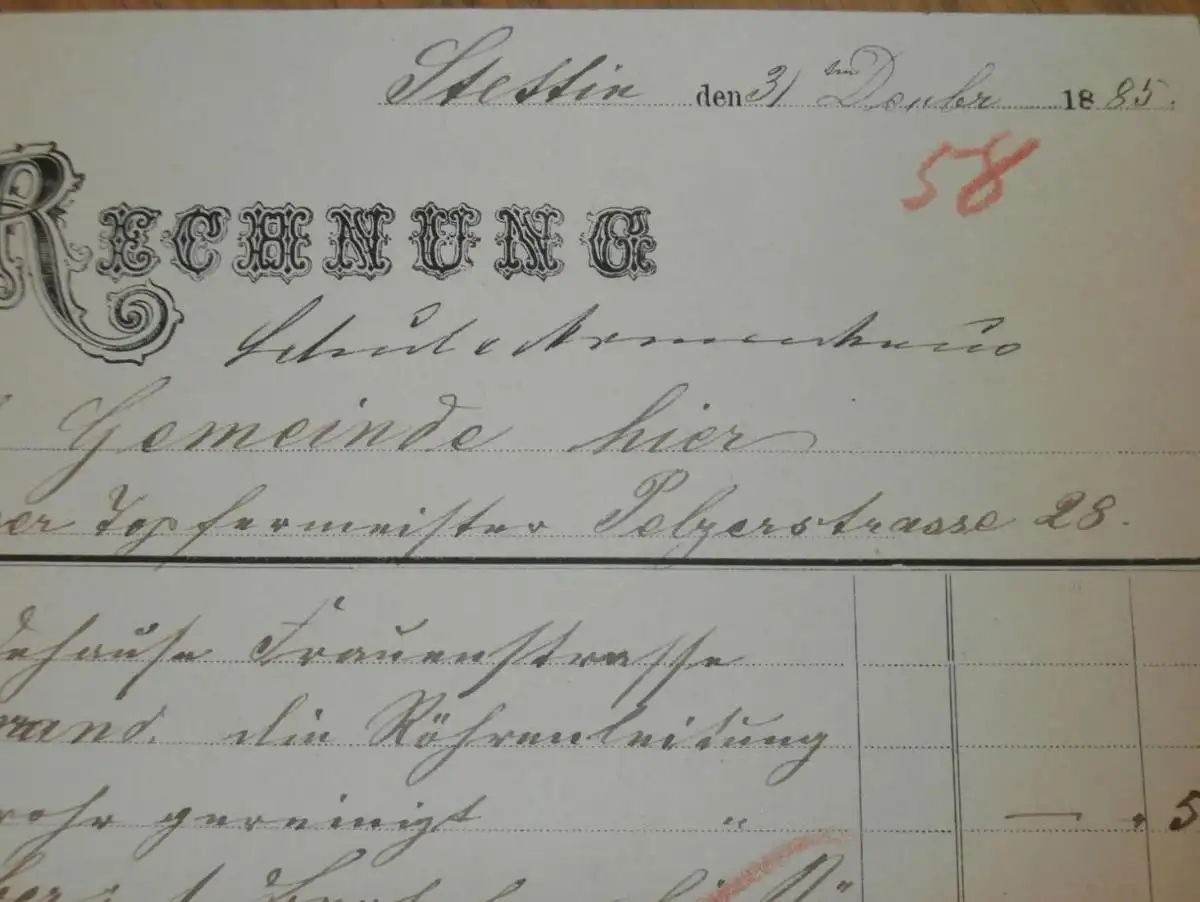 Stettin den 31 ten Dcmbr 1885.
58
RECHNUNG
Schul & Armenhaus
Gemeinde hier
er Töpfermeister Pelzerstrasse 28.
dehause Frauenstrasse
rand. die Röhrenleitung
rohr gereinigt "
— " 5